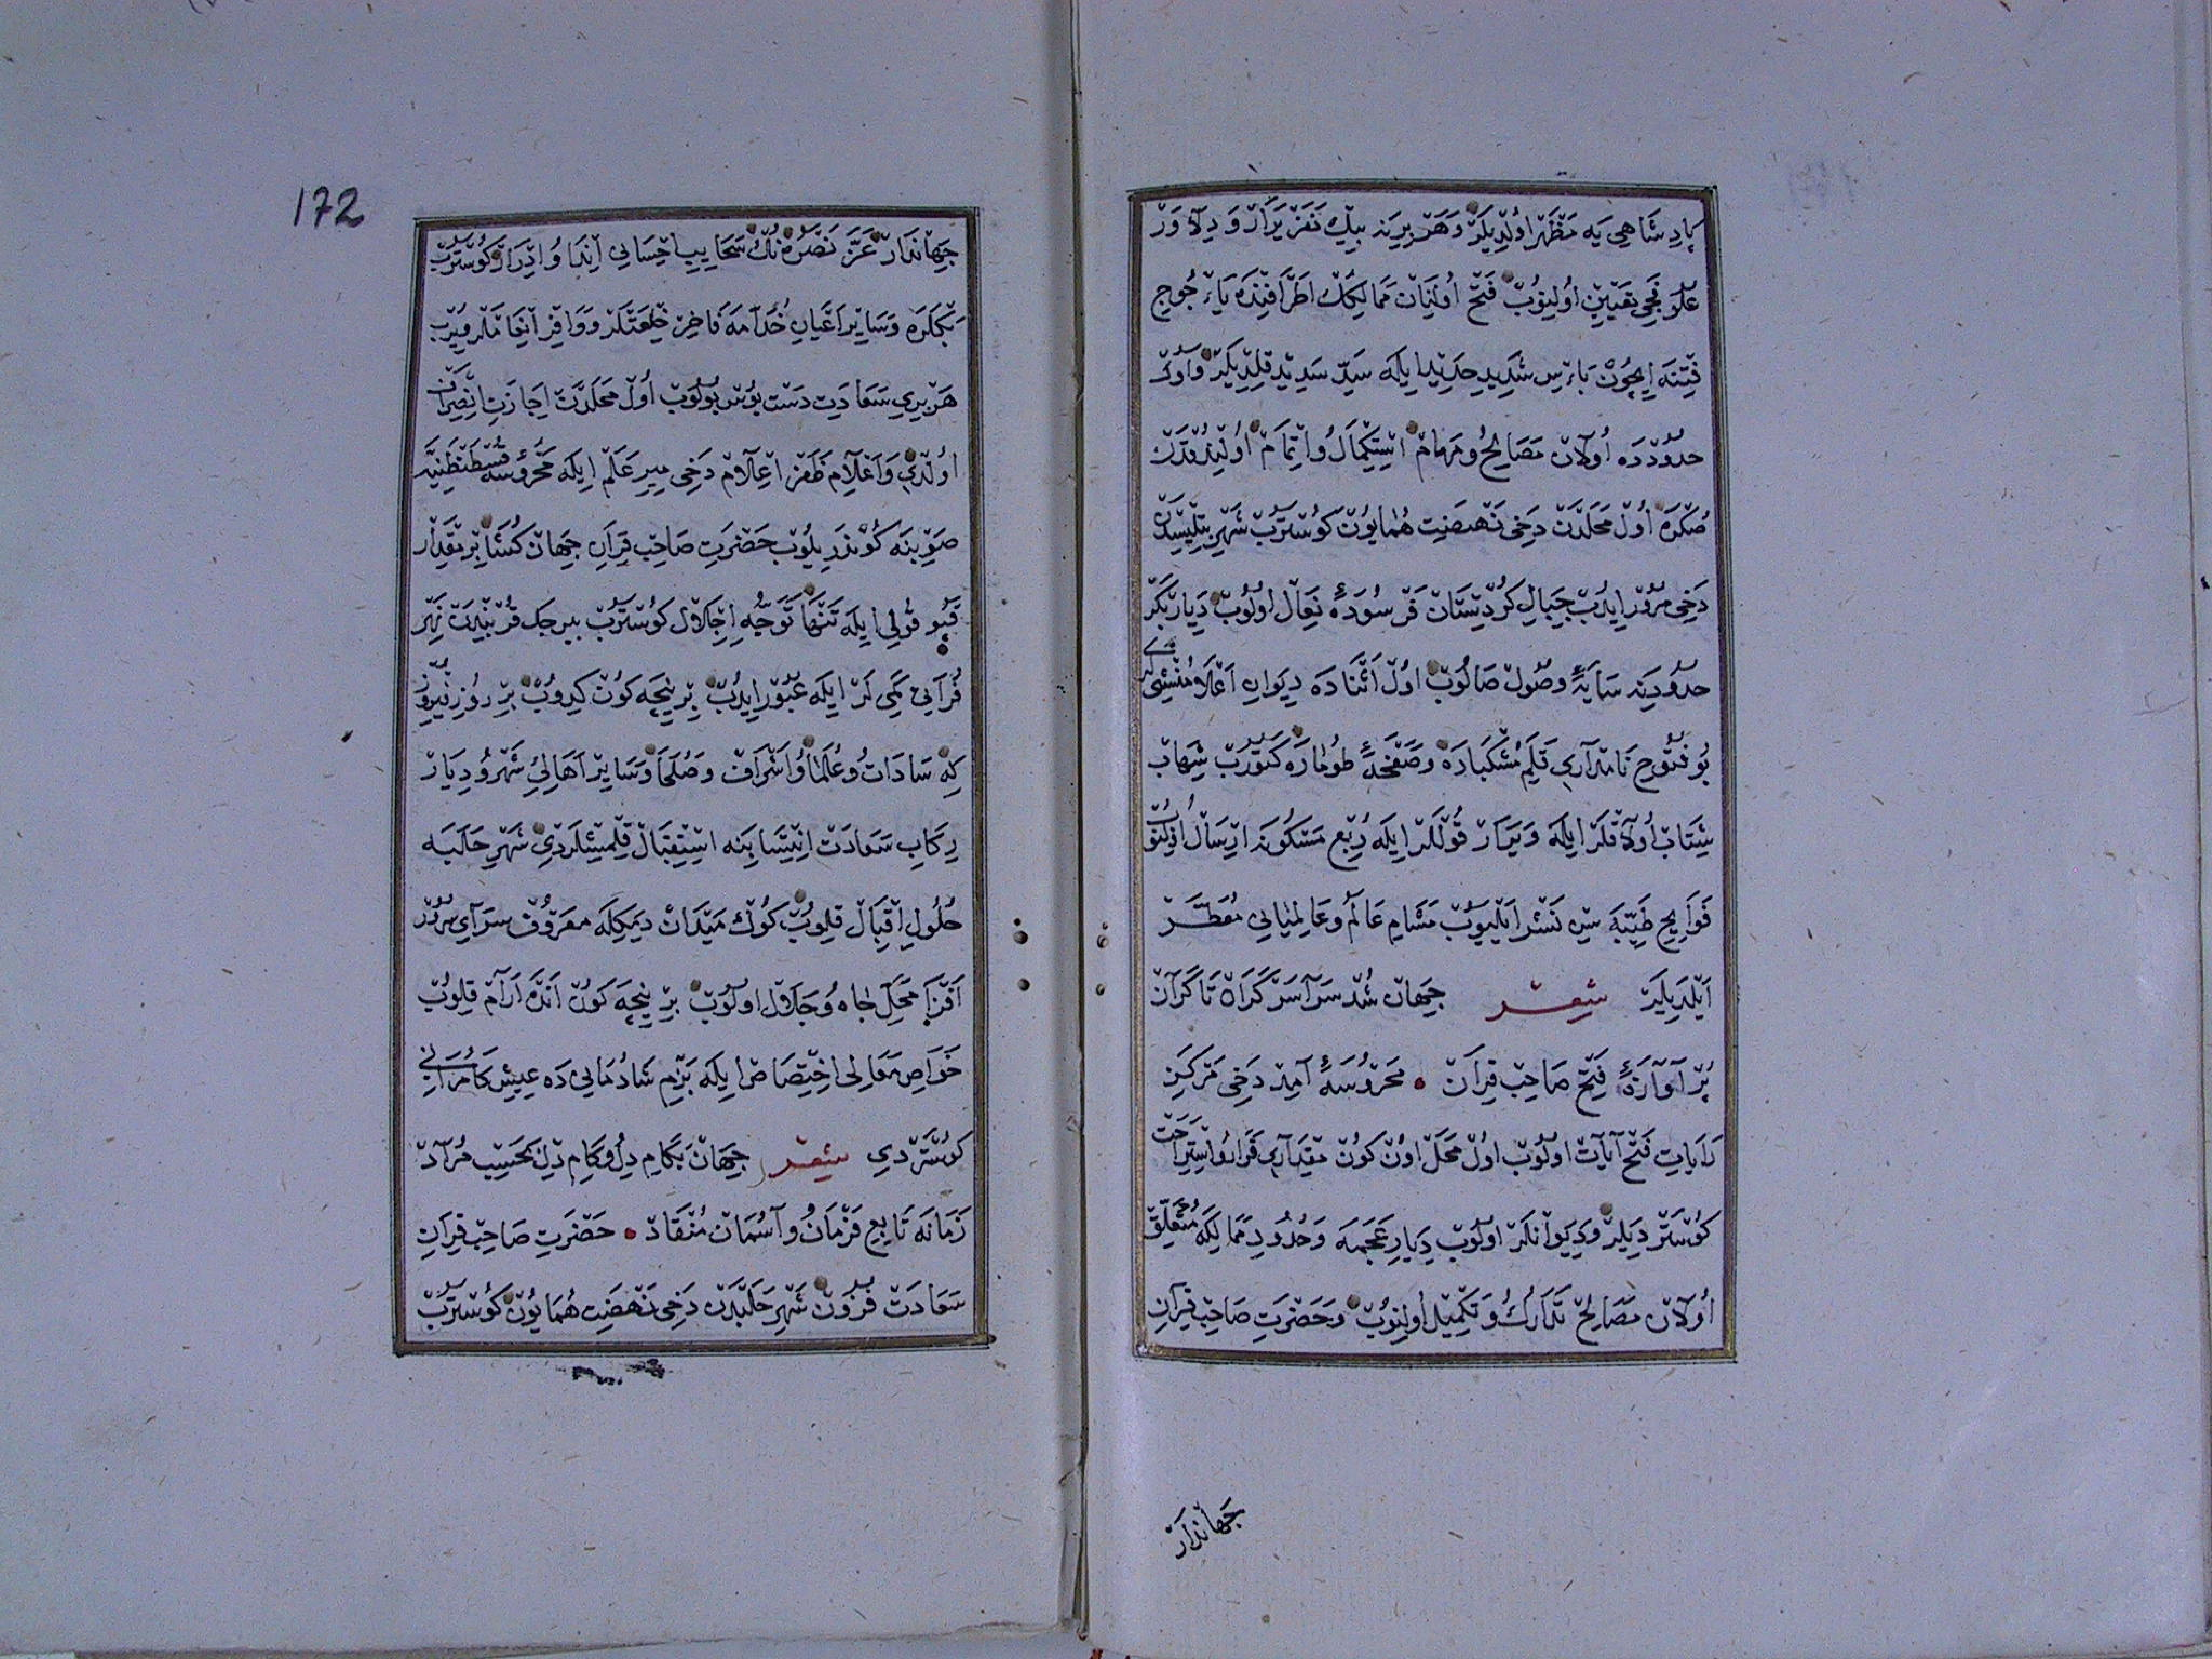 پادشاهی یه مظهر اولدیلر و هر برینه بیك نفر یرار و دلاور
علوفجی تعیین اولنوب فتح اولنان ممالكك اطرافنده یاءجوج
فتنه ایچون باءس شدید حدید ایله سد سدید قلدیلر واول
حدودده اولان مصالح و مهام استكمال و اتمام اولندقدن
صكره اول محلدن دخی نهضت همایون كوستروب شهر بتلیسدن
دخی مرور ایدب جبال كردستان فرسوده نعال اولوب دیاربكر
حدودینه سایهٔ وصول صالوب اول اثناده دیوان اعلا منشیلری
بو فتوح نامه لری قلم مشكباره و صفحهٔ طوماره كتورب شهاب
شتاب اولاقلر ایله و یرار قوللر ایله ربع مسكونه ارسال اولنوب
فوایح طیبه سین نشر ایلیوب مشام عالم و عالمیانی معطر
ایلدیلر شعر جهان شد سراسر كران تا كران
پر آوازهٔ فتح صاحب قران محروسهٔ آمد دخی مركز
رایات فتح آیات اولوب اول محل اون كون مقداری قرار و استراحت
كوستردیلر و دیوانلر اولوب دیار عجمه و حدود ممالكه متعلق
اولان مصالح تدارك و تكمیل اولنوب و حضرت صاحب قران
جهاندار
172
جهاندار عز نصره نك سحایب احسانی ایندا و ادرار كوستروب
بكلره و سایر اعیان خدامه فاخر خلعتلر و وافر انعاملر ویرب
هر بری سعادت دست بوس بولوب اول محلدن اجازت انصراف
اولدی و اعلام ظفر اعلام دخی میر علم ایله محروسه قسطنطنیه
صوبنه كوندریلوب حضرت صاحب قران جهان كشا بر مقدار
قپو قولی ایله تنها توجه اجلال كوستروب بیرجك قربندن نهر
فراتی كمی لر ایله عبور ایدب بر نیجه كون كیدوب بر روز فیروز
كه سادات و علما و اشراف و صلحا و سایر اهالی شهر و دیار
ركاب سعادت انتسابنه استقبال قلمشلردی شهر حلبه
حلول اقبال قلوب كوك میدان دیمكله معروف سرای سرور
افزا محل جاه و جلال اولوب بر نیجه كون انده ارام قلوب
خواص معالی اختصاص ایله بزم شادمانی ده عیش كامرانی
كوستردی شعر جهان بكام دل و كام دل بحسب مراد
زمانه تابع فرمان و آسمان منقاد حضرت صاحب قران
سعادت فزون شهر حلبدن دخی نهضت همایون كوستروب